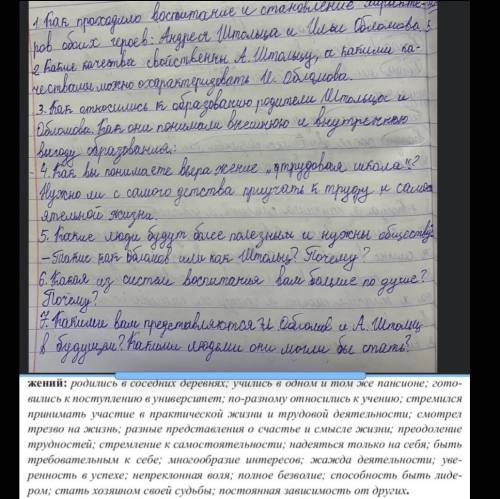 1. Как проходило воспитание и становление характе-
ров обоих героев: Андрея Штольца и Ильи Обломова.
2. Какие качества свойственны А. Штольцу, а какими ка-
чествами можно охарактеризовать И. Обломова.
3. Как относились к образованию родители Штольца и
Обломова. Как они понимали внешнюю и внутреннюю
выгоду образования.:
4. Как вы понимаете выражение „трудовая школа"?
Нужно ли с самого детства приучать к труду и само
ятельной жизни.
5. Какие люди будут более полезным и нужны обществу
- Такие как Обломов или как Штольц? Почему?
6. Какая из систем воспитания вам больше по душе?
Почему?
7. Какими вам представляются И. Обломов и А. Штольц
в будущем? Какими людьми они могли бы стать?
жений: родились в соседних деревнях; учились в одном и том же пансионе; гото-
вились к поступлению в университет; по-разному относились к учению; стремился
принимать участие в практической жизни и трудовой деятельности; смотрел
трезво на жизнь; разные представления о счастье и смысле жизни; преодоление
трудностей; стремление к самостоятельности; надеяться только на себя; быть
требовательным к себе; многообразие интересов; жажда деятельности; уве-
ренность в успехе; непреклонная воля; полное безволие; способность быть лиде-
ром; стать хозяином своей судьбы; постоянная зависимость от других.